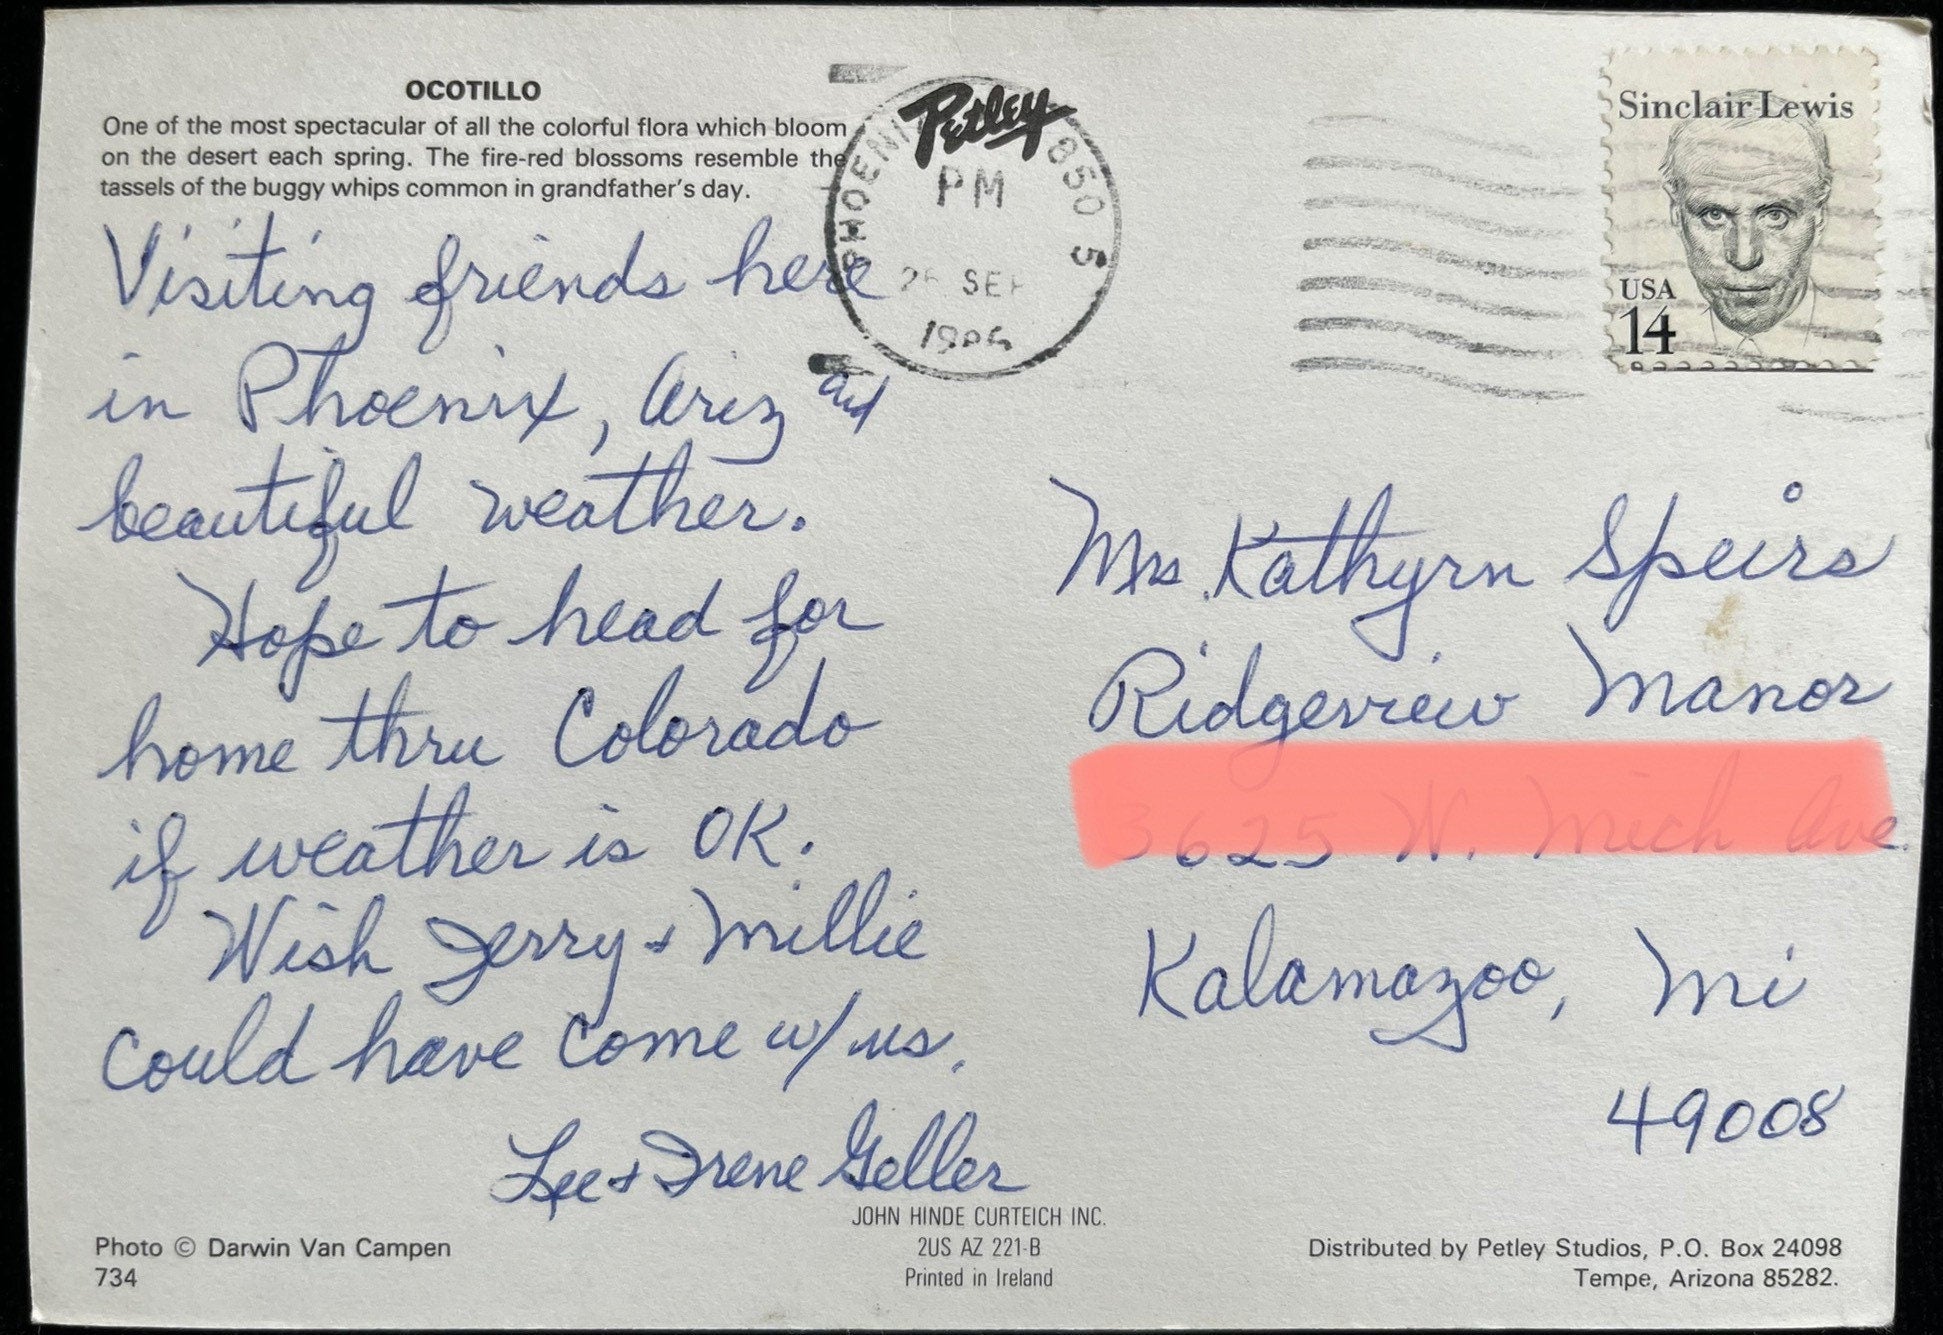 OCOTILLO
One of the most spectacular of all the colorful flora which bloom
on the desert each spring. The fire-red blossoms resemble the
tassels of the buggy whips common in grandfather's day.
Visiting friends here
in Phoenix, Ariz and
beautiful weather.
Hope to head for
home thru Colorado
if weather is OK.
Wish Jerry + Millie
could have come w/ us.
Lee + Irene Geller
Photo © Darwin Van Campen
734
JOHN HINDE CURTEICH INC.
2US AZ 221-B
Printed in Ireland
Petley
PM
Sinclair Lewis
USA
14
Mrs. Kathyrn Speirs
Ridgeview Manor
Kalamazoo, Mi
49008
Distributed by Petley Studios, P.O. Box 24098
Tempe, Arizona 85282.